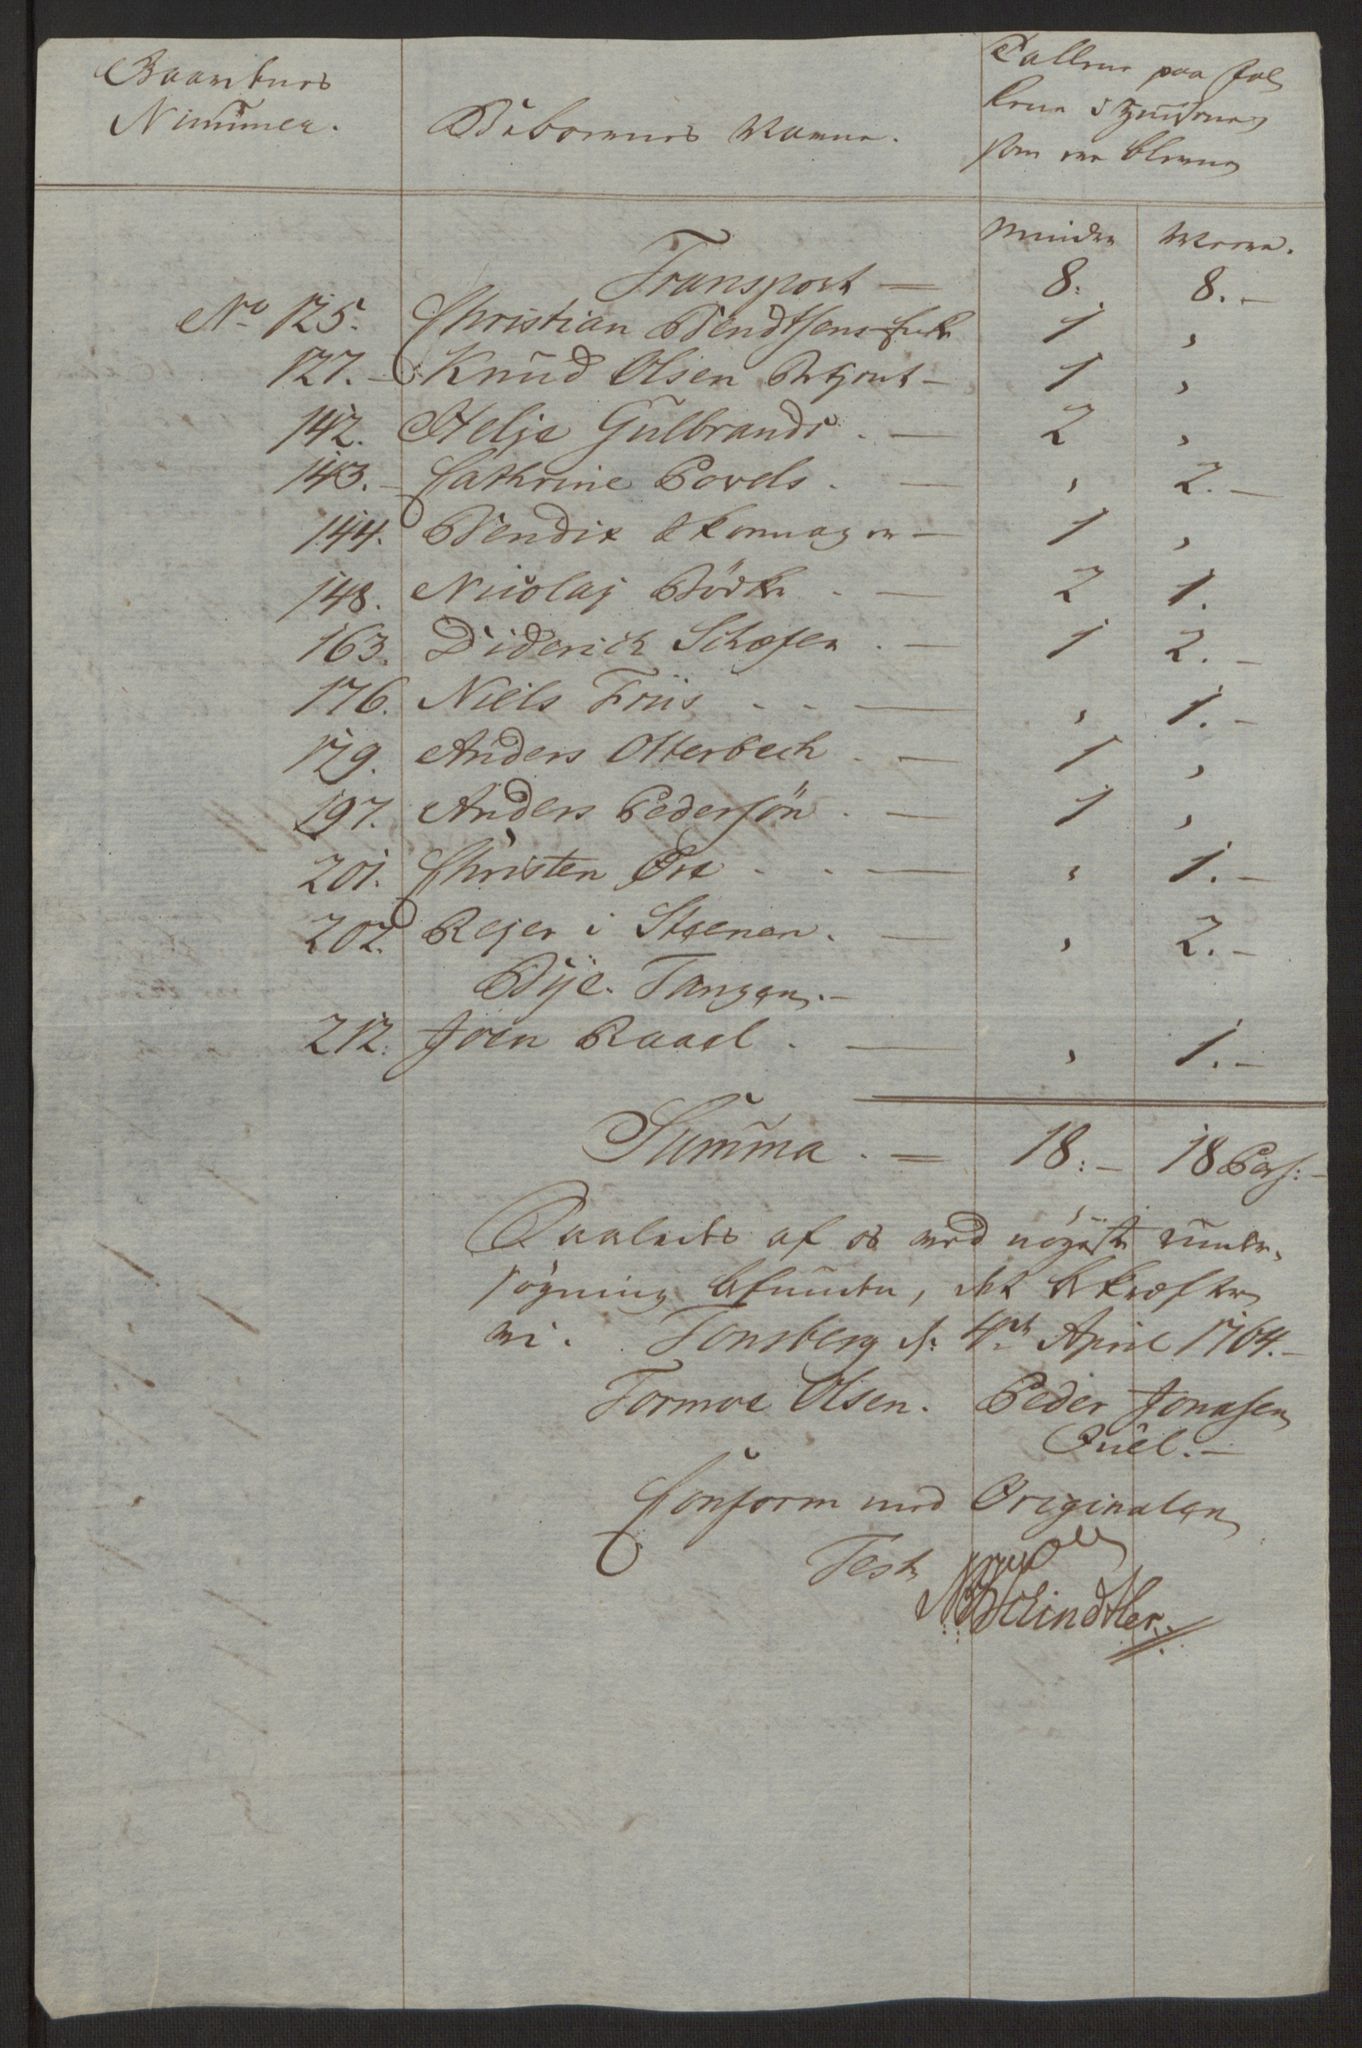 Nummer.
Beboernes Navne.
Tallene paa Fol
kene i Husene
som ere blevne
Mindre Meere.
Transport — 8. 8. —
No 125. Christian Bendtsens Enke 1 ,
127. — Knud Olsen 1 ,
142. Helje Gulbrands . — 2 ,
143. — Cathrine Povels . — , 2. —
144. Bendix Skomager — 1 ,
148. Nicolaj Bödker . — 2 1.
163. Diderich Schæfer . — 1 2. —
176. Niels Friis . . — , 1. —
179. Anders Otterbech . — 1 ,
197. Anders Pedersön . — 1 ,
201. Christen Ore . . — , 1. —
202. Rejer i Steenen . — , 2. —
Bye. Tangen. —
212. Joen Raael . — , 1. —
Summa . = 18: — 18 Pers: —
Saaledes af os med nöyeste under,
sögning befunden, det bekræfter
vi. Tonsberg d: 4de April 1764. —
Tormoe Olsen. Peder Jonasen
Quel. —
Conform med Originalen
Test.
Schindtler.